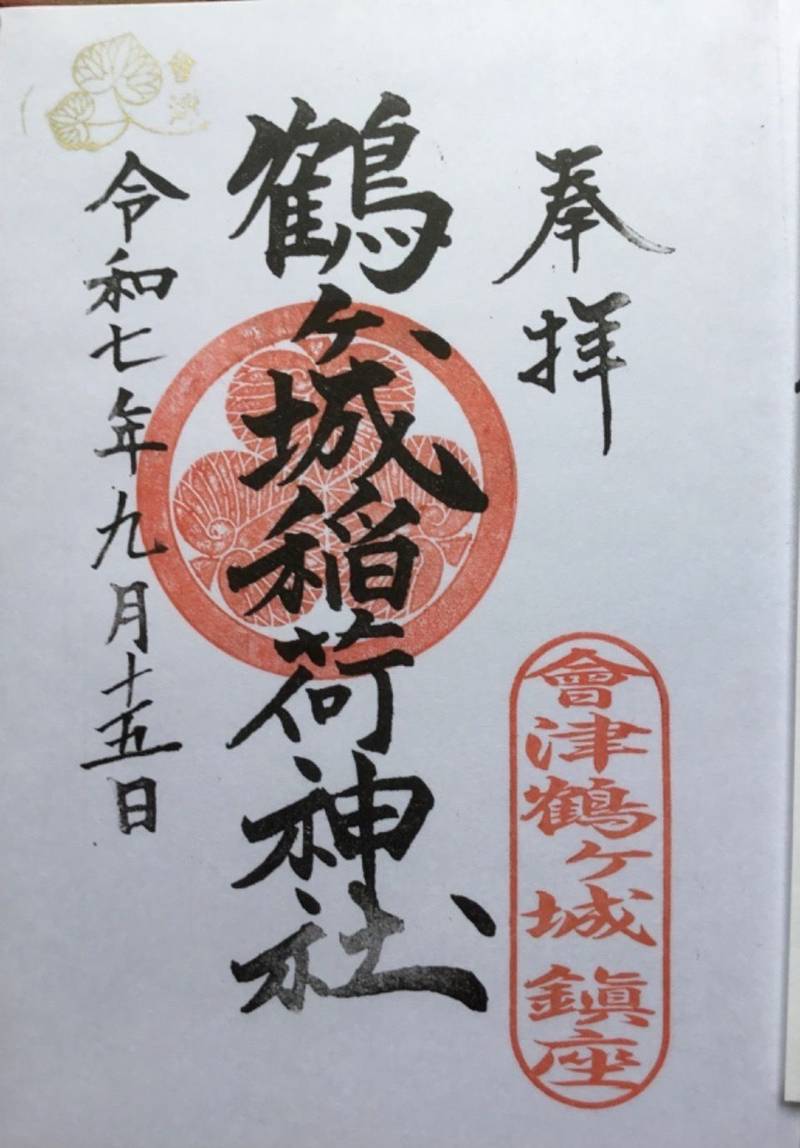 奉拝
會津鶴ケ城鎮座
鶴ヶ城稲荷神社
令和七年九月十五日
會津